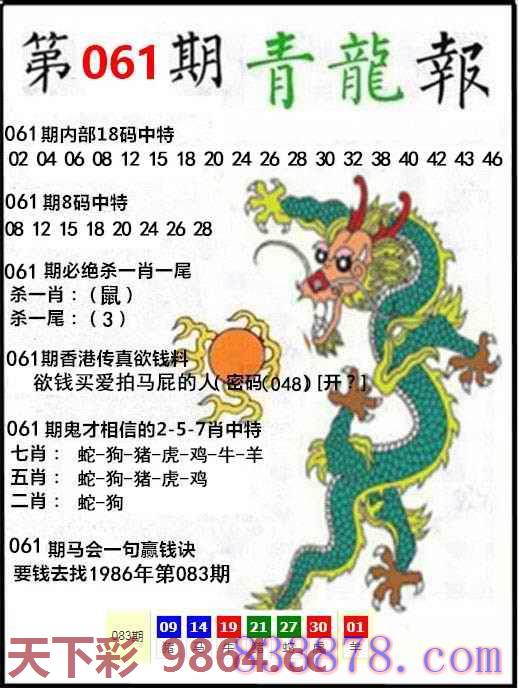 第061期 青龍報
061期内部18码中特
02 04 06 08 12 15 18 20 24 26 28 30 32 38 40 42 43 46
061期8码中特
08 12 15 18 20 24 26 28
061期必绝杀一肖一尾
杀一肖：（鼠）
杀一尾：（3）
061期香港传真欲钱料
欲钱买爱拍马屁的人(密码(048)[开？]
061期鬼才相信的2-5-7肖中特
七肖： 蛇-狗-猪-虎-鸡-牛-羊
五肖： 蛇-狗-猪-虎-鸡
二肖： 蛇-狗
061期马会一句赢钱诀
要钱去找1986年第083期
083期 09 14 19 21 27 30 01
天下彩 9864.cc
838878.com